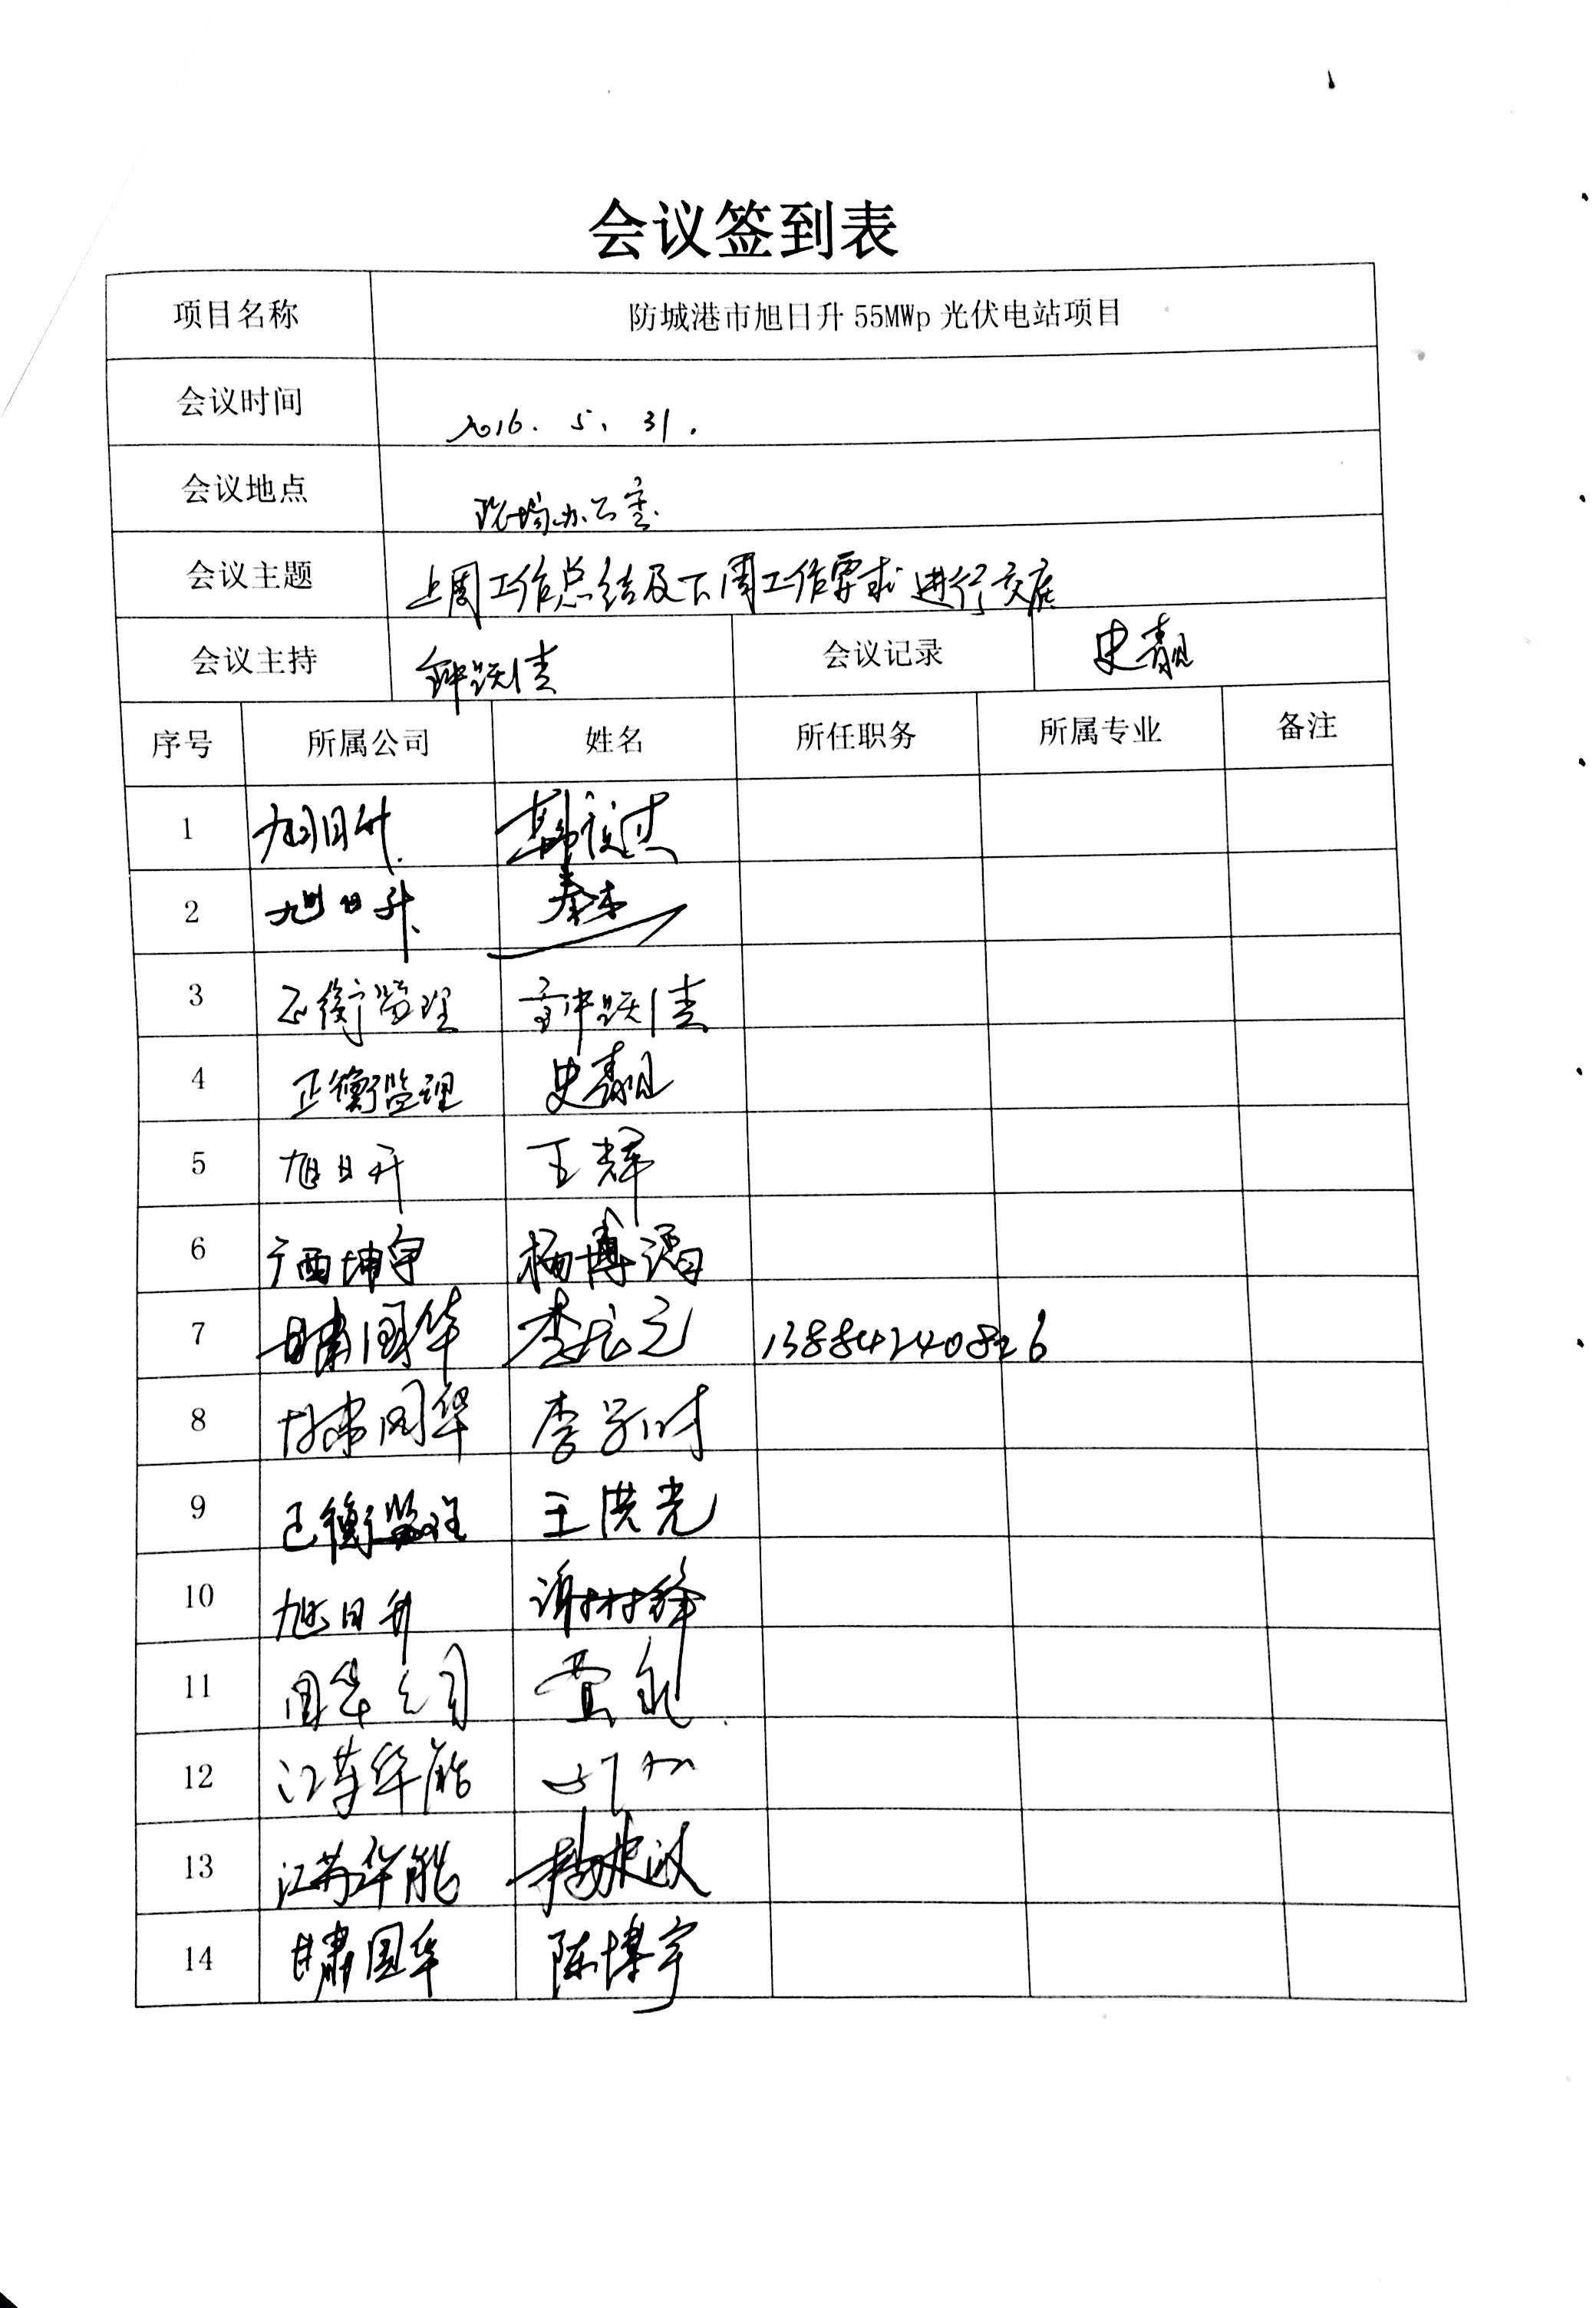 会议签到表
项目名称 防城港市旭日升 55MWp 光伏电站项目
会议时间 2016. 5. 31.
会议地点 现场办公室
会议主题 上周工作总结及下周工作要求进行交底
会议主持 钟跃佳 会议记录 史
序号 所属公司 姓名 所任职务 所属专业 备注
1 旭日升
2 旭日升 秦
3 正衡监理 钟跃佳
4 正衡监理 史
5 旭日升 王辉
6 广西坤宇 杨博
7 甘肃国华 李 元 13884240826
8 甘肃国华 李
9 正衡监理 王洪光
10 旭日升 谢林锋
11 国华公司
12 江苏华能
13 江苏华能 杨
14 甘肃国华 陈博宇